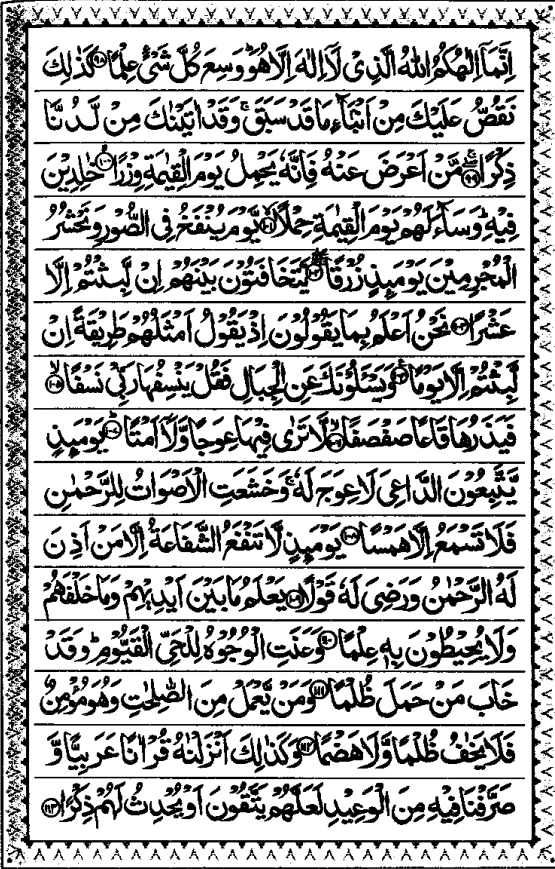 اِنَّمَاۤ اِلٰهُكُمُ اللّٰهُ الَّذِیْ لَاۤ اِلٰهَ اِلَّا هُوَ ؕ وَسِعَ كُلَّ شَیْءٍ عِلْمًا ۹۸ كَذٰلِكَ
نَقُصُّ عَلَیْكَ مِنْ اَنْۢبَآءِ مَا قَدْ سَبَقَ ۚ وَقَدْ اٰتَیْنٰكَ مِنْ لَّدُنَّا
ذِكْرًا ۹۹ مَّنْ اَعْرَضَ عَنْهُ فَاِنَّهٗ یَحْمِلُ یَوْمَ الْقِیٰمَةِ وِزْرًا ۱۰۰ خٰلِدِیْنَ
فِیْهِ ؕ وَسَآءَ لَهُمْ یَوْمَ الْقِیٰمَةِ حِمْلًا ۱۰۱ یَّوْمَ یُنْفَخُ فِی الصُّوْرِ وَنَحْشُرُ
الْمُجْرِمِیْنَ یَوْمَىِٕذٍ زُرْقًا ۱۰۲ یَّتَخَافَتُوْنَ بَیْنَهُمْ اِنْ لَّبِثْتُمْ اِلَّا
عَشْرًا ۱۰۳ نَحْنُ اَعْلَمُ بِمَا یَقُوْلُوْنَ اِذْ یَقُوْلُ اَمْثَلُهُمْ طَرِیْقَةً اِنْ
لَّبِثْتُمْ اِلَّا یَوْمًا ۱۰۴ وَیَسْـَٔلُوْنَكَ عَنِ الْجِبَالِ فَقُلْ یَنْسِفُهَا رَبِّیْ نَسْفًا ۱۰۵
فَیَذَرُهَا قَاعًا صَفْصَفًا ۱۰۶ لَّا تَرٰی فِیْهَا عِوَجًا وَّلَاۤ اَمْتًا ۱۰۷ یَوْمَىِٕذٍ
یَّتَّبِعُوْنَ الدَّاعِیَ لَا عِوَجَ لَهٗ ۚ وَخَشَعَتِ الْاَصْوَاتُ لِلرَّحْمٰنِ
فَلَا تَسْمَعُ اِلَّا هَمْسًا ۱۰۸ یَوْمَىِٕذٍ لَّا تَنْفَعُ الشَّفَاعَةُ اِلَّا مَنْ اَذِنَ
لَهُ الرَّحْمٰنُ وَرَضِیَ لَهٗ قَوْلًا ۱۰۹ یَعْلَمُ مَا بَیْنَ اَیْدِیْهِمْ وَمَا خَلْفَهُمْ
وَلَا یُحِیْطُوْنَ بِهٖ عِلْمًا ۱۱۰ وَعَنَتِ الْوُجُوْهُ لِلْحَیِّ الْقَیُّوْمِ ؕ وَقَدْ
خَابَ مَنْ حَمَلَ ظُلْمًا ۱۱۱ وَمَنْ یَّعْمَلْ مِنَ الصّٰلِحٰتِ وَهُوَ مُؤْمِنٌ
فَلَا یَخٰفُ ظُلْمًا وَّلَا هَضْمًا ۱۱۲ وَكَذٰلِكَ اَنْزَلْنٰهُ قُرْاٰنًا عَرَبِیًّا وَّ
صَرَّفْنَا فِیْهِ مِنَ الْوَعِیْدِ لَعَلَّهُمْ یَتَّقُوْنَ اَوْ یُحْدِثُ لَهُمْ ذِكْرًا ۱۱۳